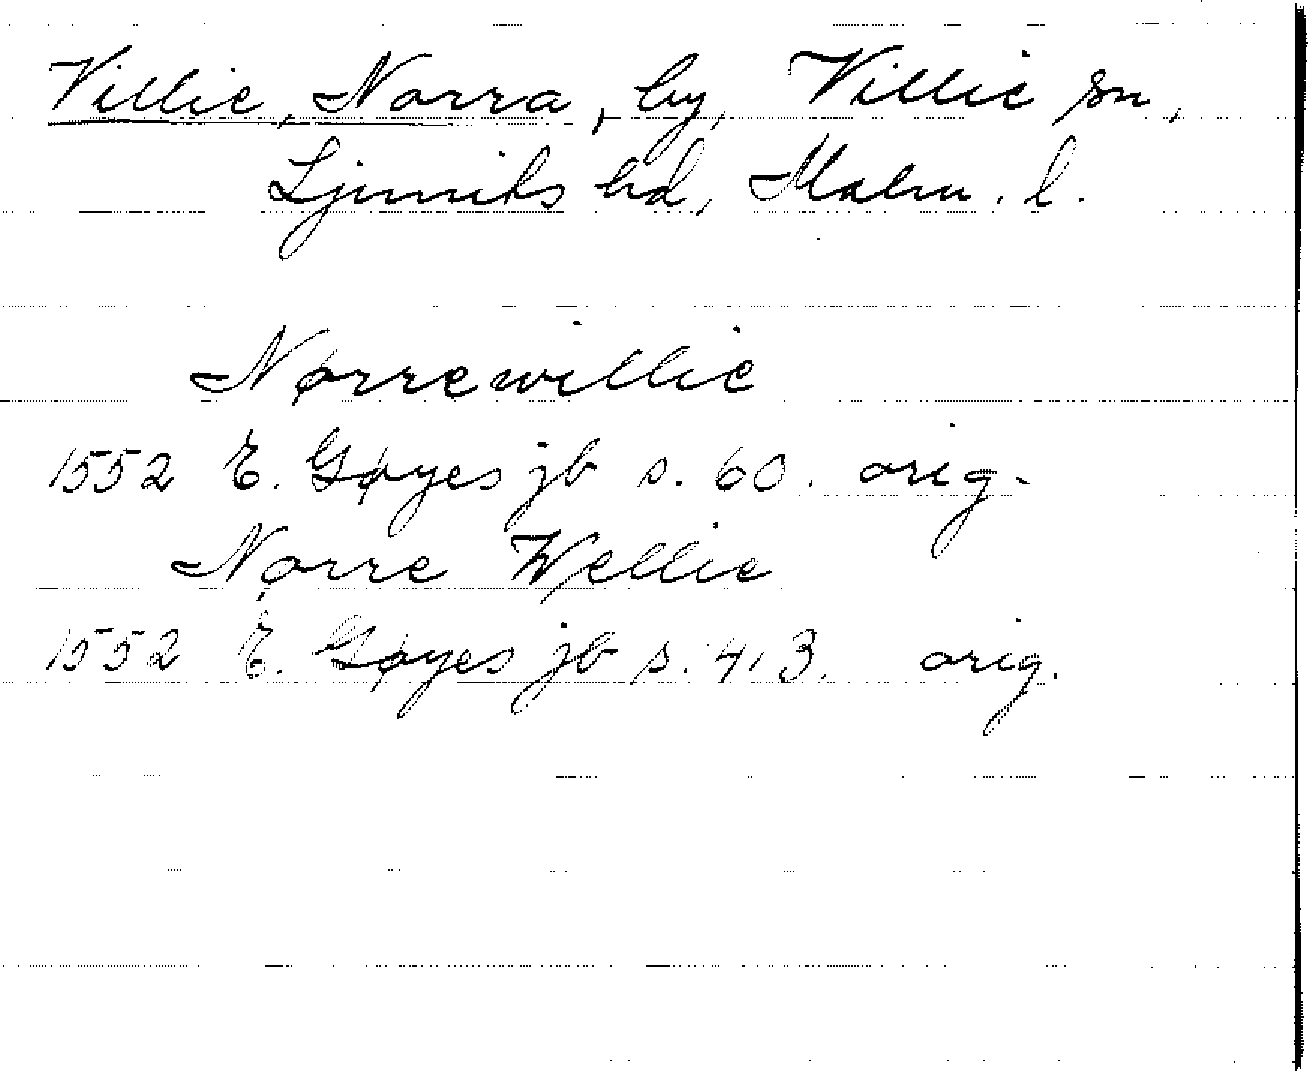 Villie, Norra, by, Villie sn,
Ljunits hd, Malm. l.
Nørrewillie
1552 E. Gøyes jb s. 60. orig.
Nørre Wellie
1552 E. Gøyes jb s. 413. orig.